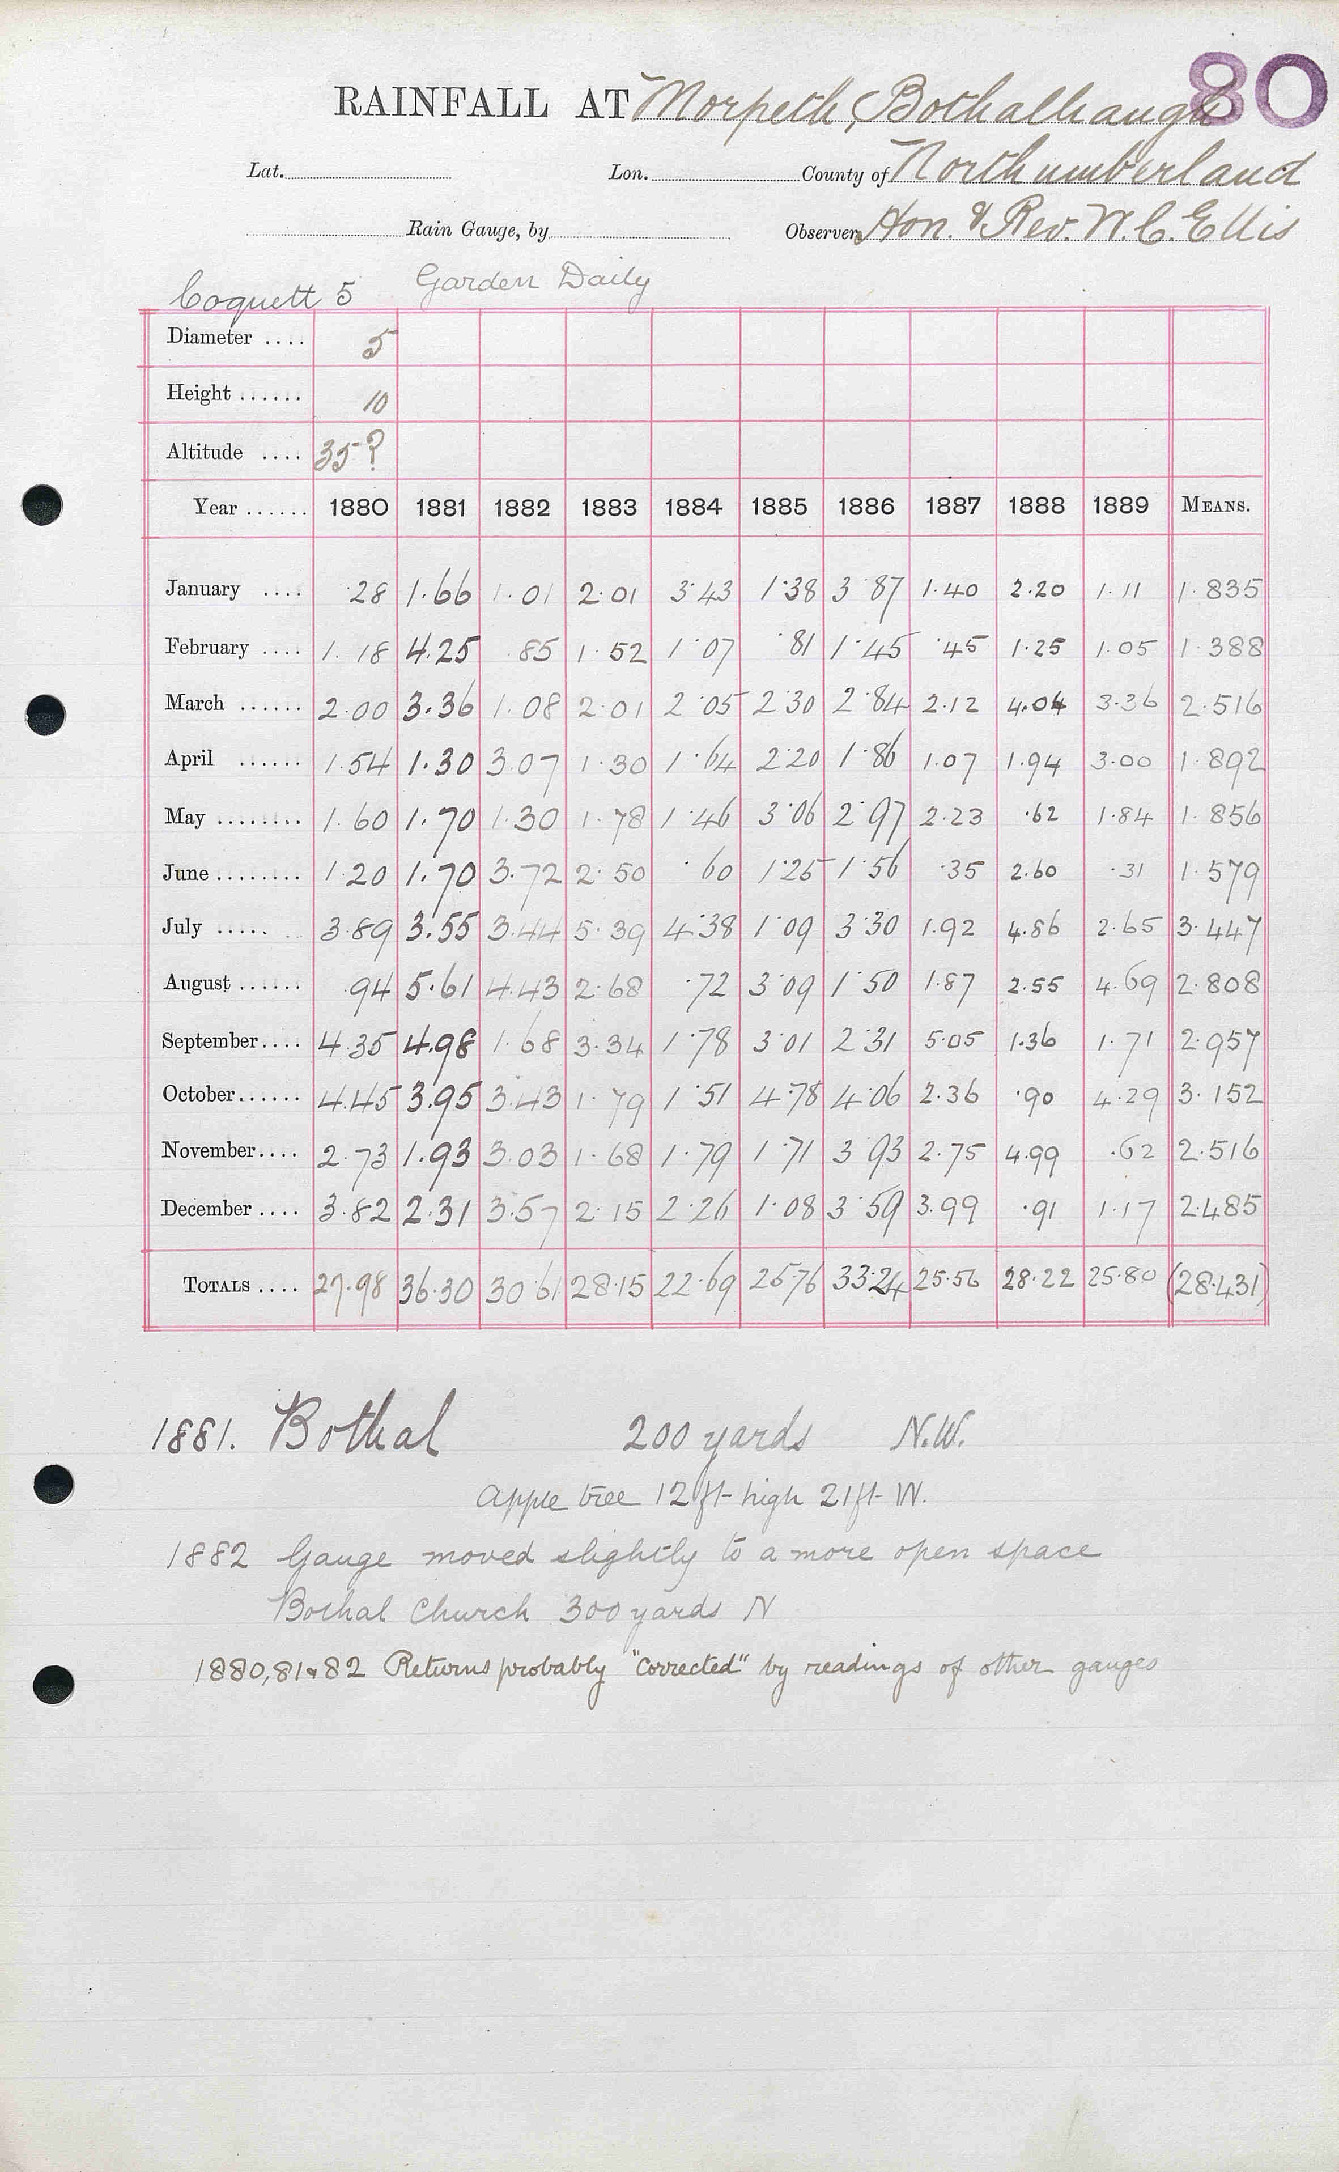 80
RAINFALL AT Morpeth, Bothalhaugh
Lat. Lon. County of Northumberland
Rain Gauge, by Observer Hon. & Rev. W. C. Ellis
Coquett 5 Garden Daily
Diameter .... 5
Height ...... 10
Altitude .... 35?
Year ...... 1880 1881 1882 1883 1884 1885 1886 1887 1888 1889 MEANS.
January .... .28 1.66 1.01 2.01 3.43 1.38 3.87 1.40 2.20 1.11 1.835
February .... 1.18 4.25 .85 1.52 1.07 .81 1.45 .45 1.25 1.05 1.388
March ...... 2.00 3.36 1.08 2.01 2.05 2.30 2.84 2.12 4.04 3.36 2.516
April ...... 1.54 1.30 3.07 1.30 1.64 2.20 1.86 1.07 1.94 3.00 1.892
May ........ 1.60 1.70 1.30 1.78 1.46 3.06 2.97 2.23 .62 1.84 1.856
June ........ 1.20 1.70 3.72 2.50 .60 1.25 1.56 .35 2.60 .31 1.579
July ..... 3.89 3.55 3.44 5.39 4.38 1.09 3.30 1.92 4.86 2.65 3.447
August ...... .94 5.61 4.43 2.68 .72 3.09 1.50 1.87 2.55 4.69 2.808
September.... 4.35 4.98 1.68 3.34 1.78 3.01 2.31 5.05 1.36 1.71 2.957
October...... 4.45 3.95 3.43 1.79 1.51 4.78 4.06 2.36 .90 4.29 3.152
November.... 2.73 1.93 3.03 1.68 1.79 1.71 3.93 2.75 4.99 .62 2.516
December .... 3.82 2.31 3.57 2.15 2.26 1.08 3.59 3.99 .91 1.17 2.485
TOTALS .... 27.98 36.30 30.61 28.15 22.69 25.76 33.24 25.56 28.22 25.80 (28.431)
1881. Bothal 200 yards N.W.
Apple tree 12 ft high 21 ft W.
1882 Gauge moved slightly to a more open space
Bothal Church 300 yards N
1880, 81 & 82 Returns probably "corrected" by readings of other gauges